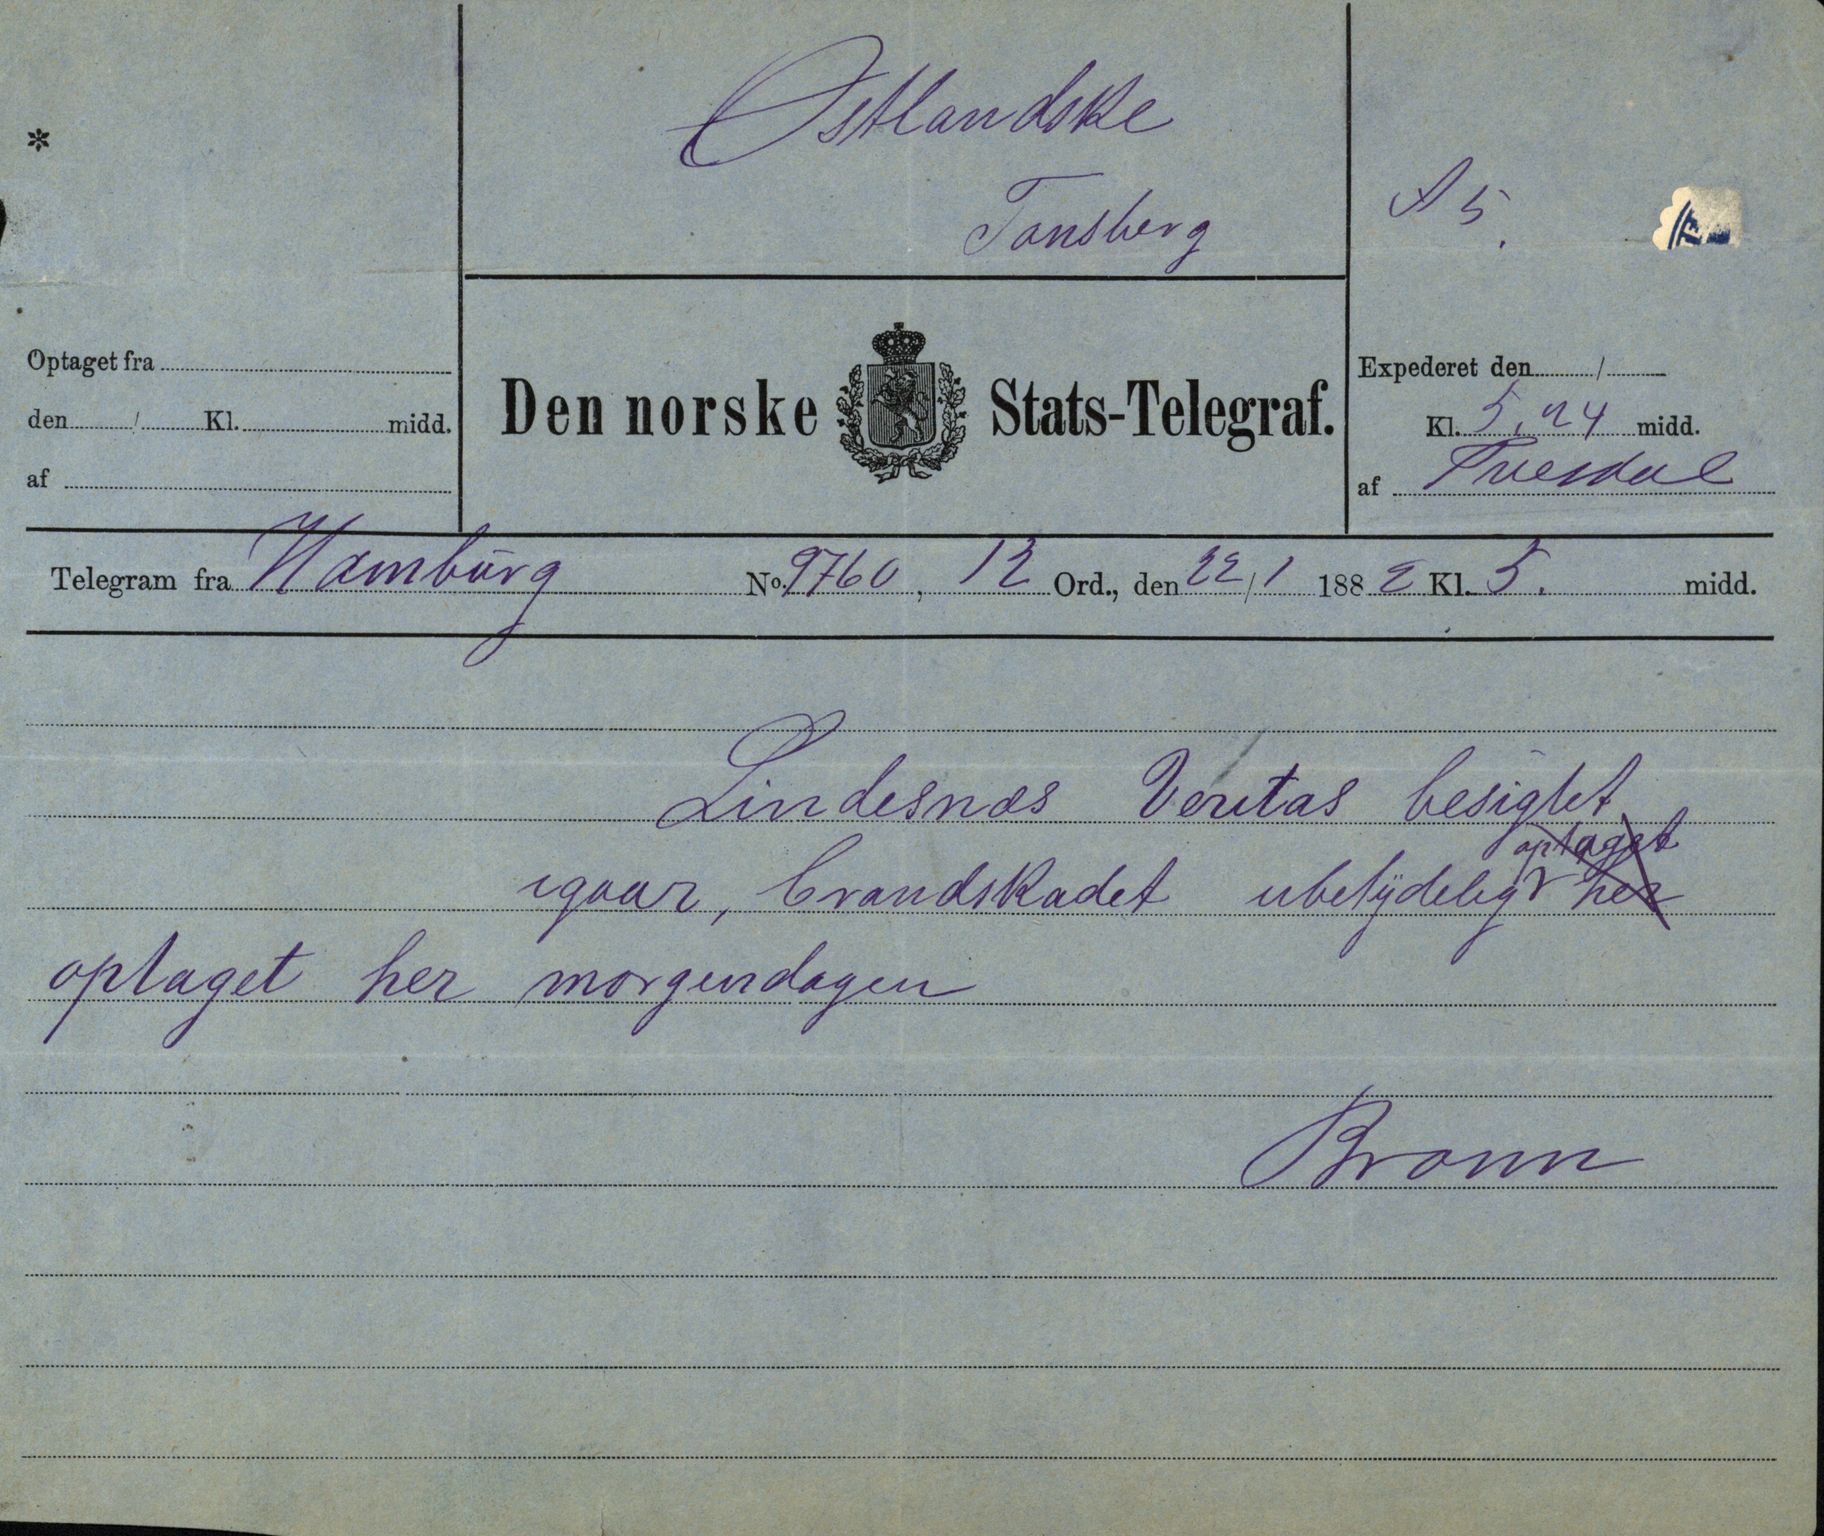 *
Østlandske
Tonsberg
A 5.
Optaget fra
den / Kl. midd.
af
Den norske Stats-Telegraf.
Expederet den /
Kl. 5.24 midd.
af
Telegram fra Hamburg No. 9760, 12 Ord., den 22/1 1882 Kl. 5. midd.
Lindesnæs Veritas besigtet
optaget
igaar, brandskadet ubetydeligt her
optaget her morgendagen
Bronn